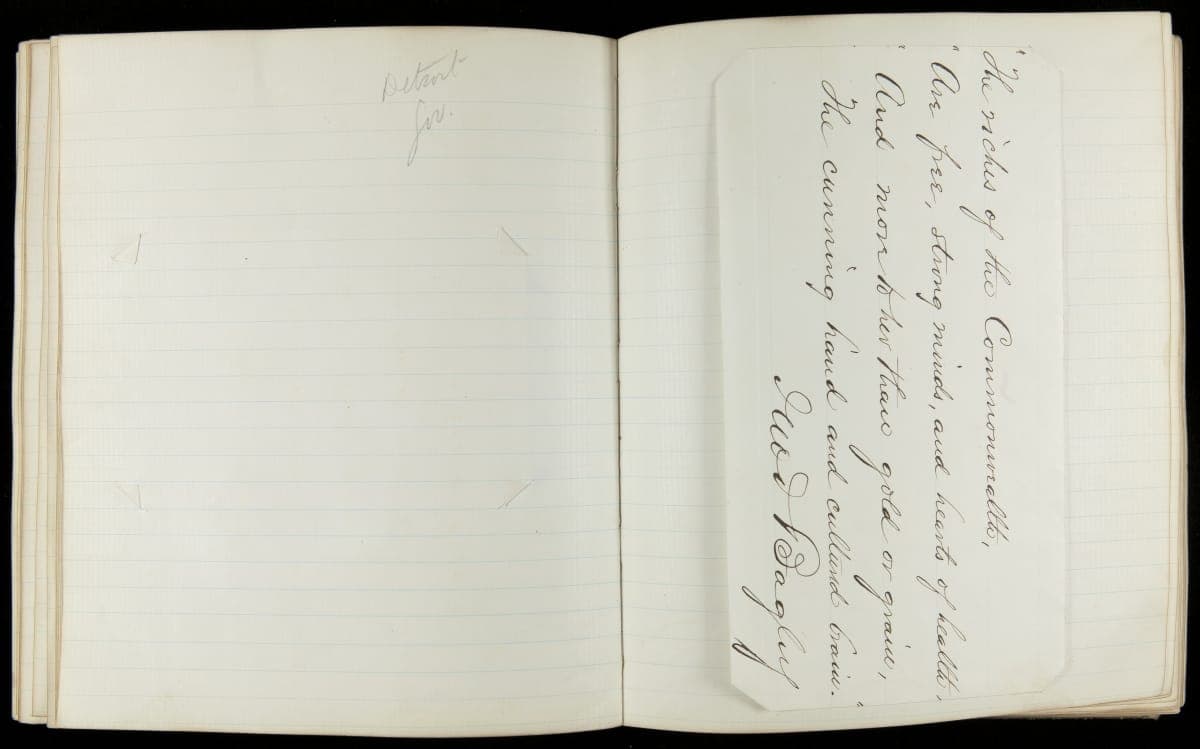 Detroit
Gov.
"The riches of the Commonwealth,
"Are free, strong minds, and hearts of health;
"And more to her than gold or grain,
"The cunning hand and cultured brain."
Jno J Bagley